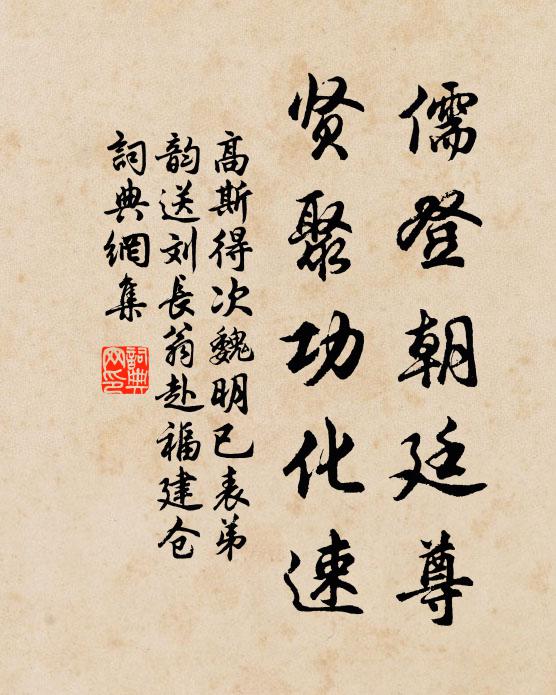 儒登朝廷尊
贤聚功化速
高斯得次魏明已表弟
韵送刘長翁赴福建仓
詞典網集
詞典网印